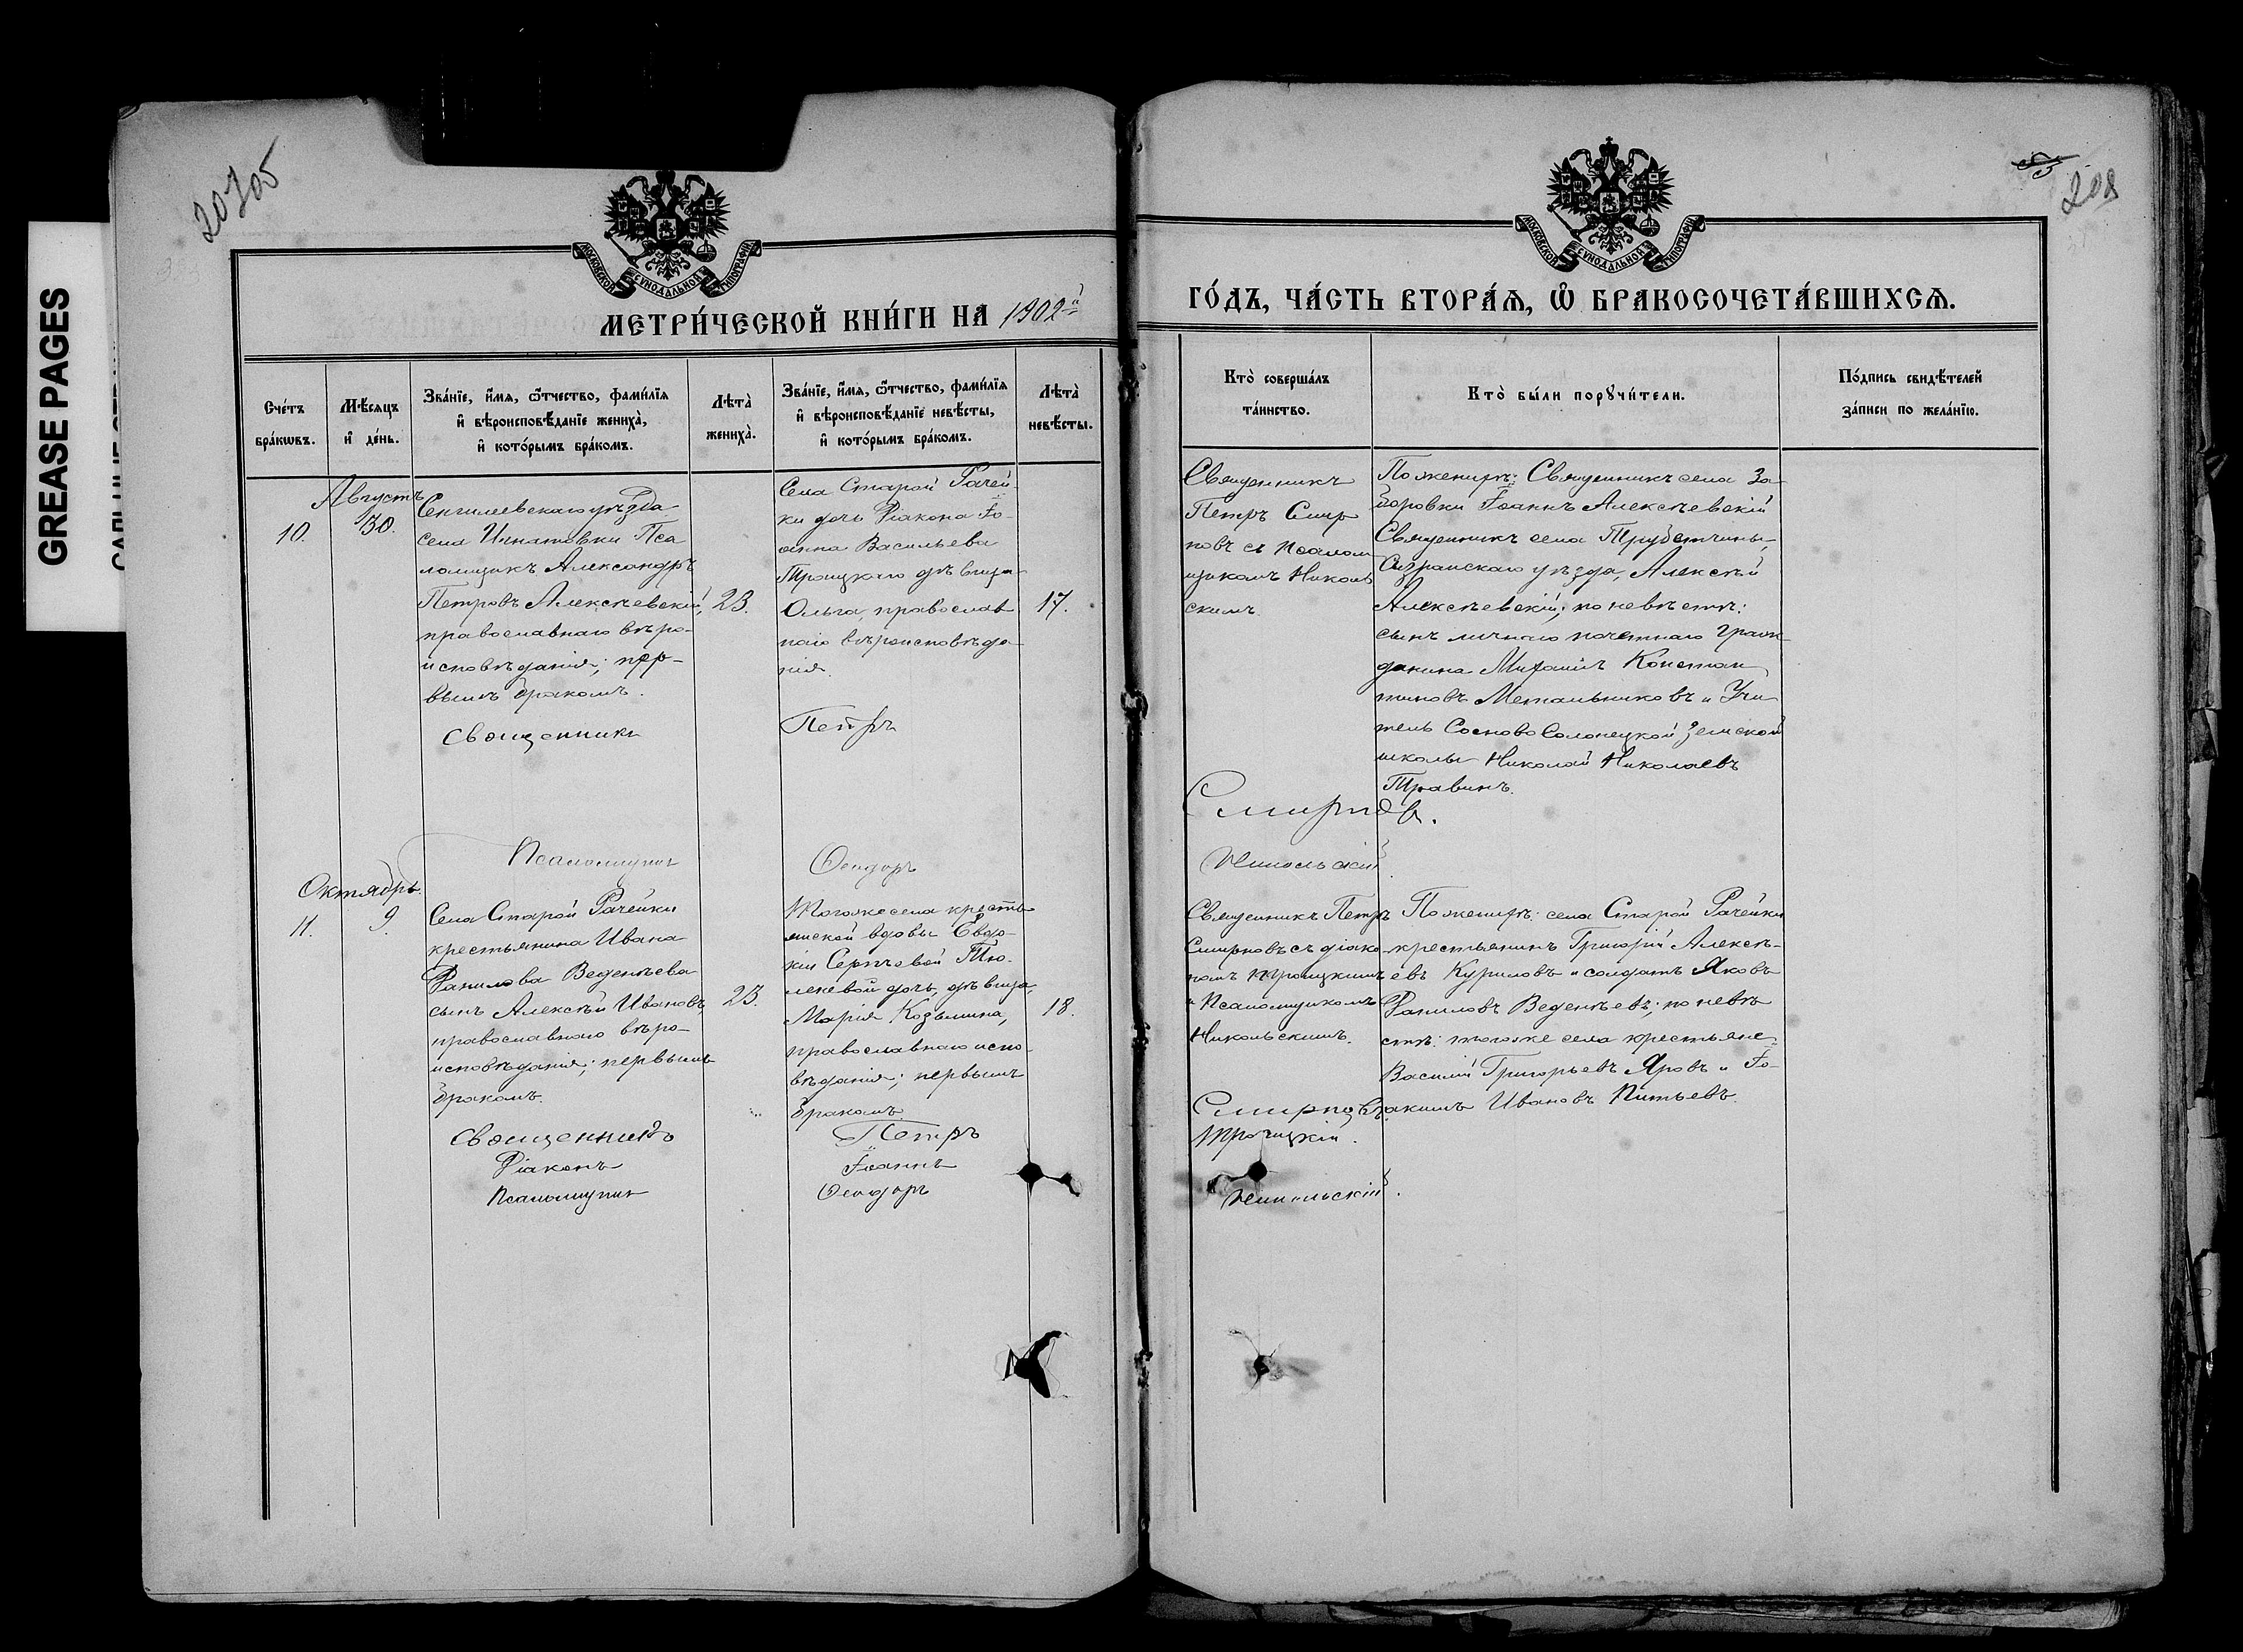 GREASE PAGES
20705
208
МОСКОВСКОЙ СѴНОДАЛЬНОЙ ТИПОГРАФІИ
МЕТРИ́ЧЕСКОЙ КНИ́ГИ НА 1902й
Сче́тъ бра́кѡвъ.
Мѣ́сяцъ и҆ де́нь.
Зва́нїе, и҆́мѧ, ѻ҆́тчество, фами́лїѧ
и҆ вѣроисповѣ́данїе жениха̀,
и҆ кото́рымъ бра́комъ.
Лѣта̀ жениха̀.
Зва́нїе, и҆́мѧ, ѻ҆́тчество, фами́лїѧ
и҆ вѣроисповѣ́данїе невѣ́сты,
и҆ кото́рымъ бра́комъ.
Лѣта̀ невѣ́сты.
Августъ
10.
30.
Сенгилеевскаго уѣзда
села Игнатовки Пса
ломщикъ Александръ
Петровъ Алексѣевскій,
православнаго вѣро-
исповѣданія; пер-
вымъ бракомъ.
23.
Села Старой Рачей-
ки дочь Діакона Іо-
анна Васильева
Троицкаго дѣвица
Ольга, православ
наго вѣроисповѣда
нія.
17.
Священникъ
Петръ
Псаломщикъ
Ѳеодоръ
Октябрь.
11.
9.
Села Старой Рачейки
крестьянина Ивана
Данилова Веденѣева
сынъ Алексѣй Ивановъ,
православнаго вѣро-
исповѣданія; первымъ
бракомъ.
23.
Тогоже села кресть-
янской вдовы Евдо-
кіи Сергѣевой Тю-
леневой дочь, дѣвица,
Марія Козьмина,
православнаго испо
вѣданія; первымъ
бракомъ.
18.
Священникъ
Петръ
Діаконъ
Іоаннъ
Псаломщикъ
Ѳеодоръ
МОСКОВСКОЙ СѴНОДАЛЬНОЙ ТИПОГРАФІИ
ГО́ДЪ, ЧА́СТЬ ВТОРА́Ѧ, Ѡ҆ БРАКОСОЧЕТА́ВШИХСѦ.
Кто̀ соверша́лъ
та́инство.
Кто̀ бы́ли порꙋчи́тели.
По́дпись свидѣ́телей
за́писи по жела́нїю.
Священникъ
Петръ Смир
новъ съ Псалом
щикомъ Николь
скимъ.
По женихѣ: Священникъ села За-
боровки Іоаннъ Алексѣевскій
Священникъ села Трубетчины,
Сызранскаго уѣзда, Алексѣй
Алексѣевскій; по невѣстѣ:
сынъ личнаго почетнаго граж
данина Михаилъ Констан
тиновъ Метальниковъ и Учи
тель Сосново Солонецкой Земской
школы Николай Николаевъ
Травинъ.
Смирновъ.
Никольскій.
Священникъ Петръ
Смирновъ съ діако-
номъ Троицкимъ
и Псаломщикомъ
Никольскимъ.
По женихѣ: села Старой Рачейки
крестьянинъ Григорій Алексѣ-
евъ Куриловъ и солдатъ Яковъ
Даниловъ Веденѣевъ; по невѣ
стѣ: тогоже села крестьяне
Василій Григорьевъ Яровъ и Іо-
акимъ Ивановъ Питьевъ.
Смирновъ.
Троицкій.
Никольскій.